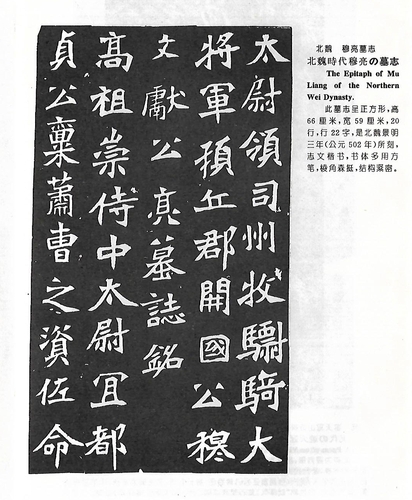 太尉領司州牧驃騎大
將軍頓丘郡開國公穆
文獻公亮墓誌銘
高祖崇侍中太尉冝都
貞公稟蕭曹之資佐命
北魏 穆亮墓志
北魏時代穆亮の墓志
The Epitaph of Mu
Liang of the Northern
Wei Dynasty.
此墓志呈正方形，高
66厘米，宽59厘米，20
行，行22字，是北魏景明
三年（公元502年）所刻，
志文楷书，书体多用方
笔，棱角森挺，结构紧密。